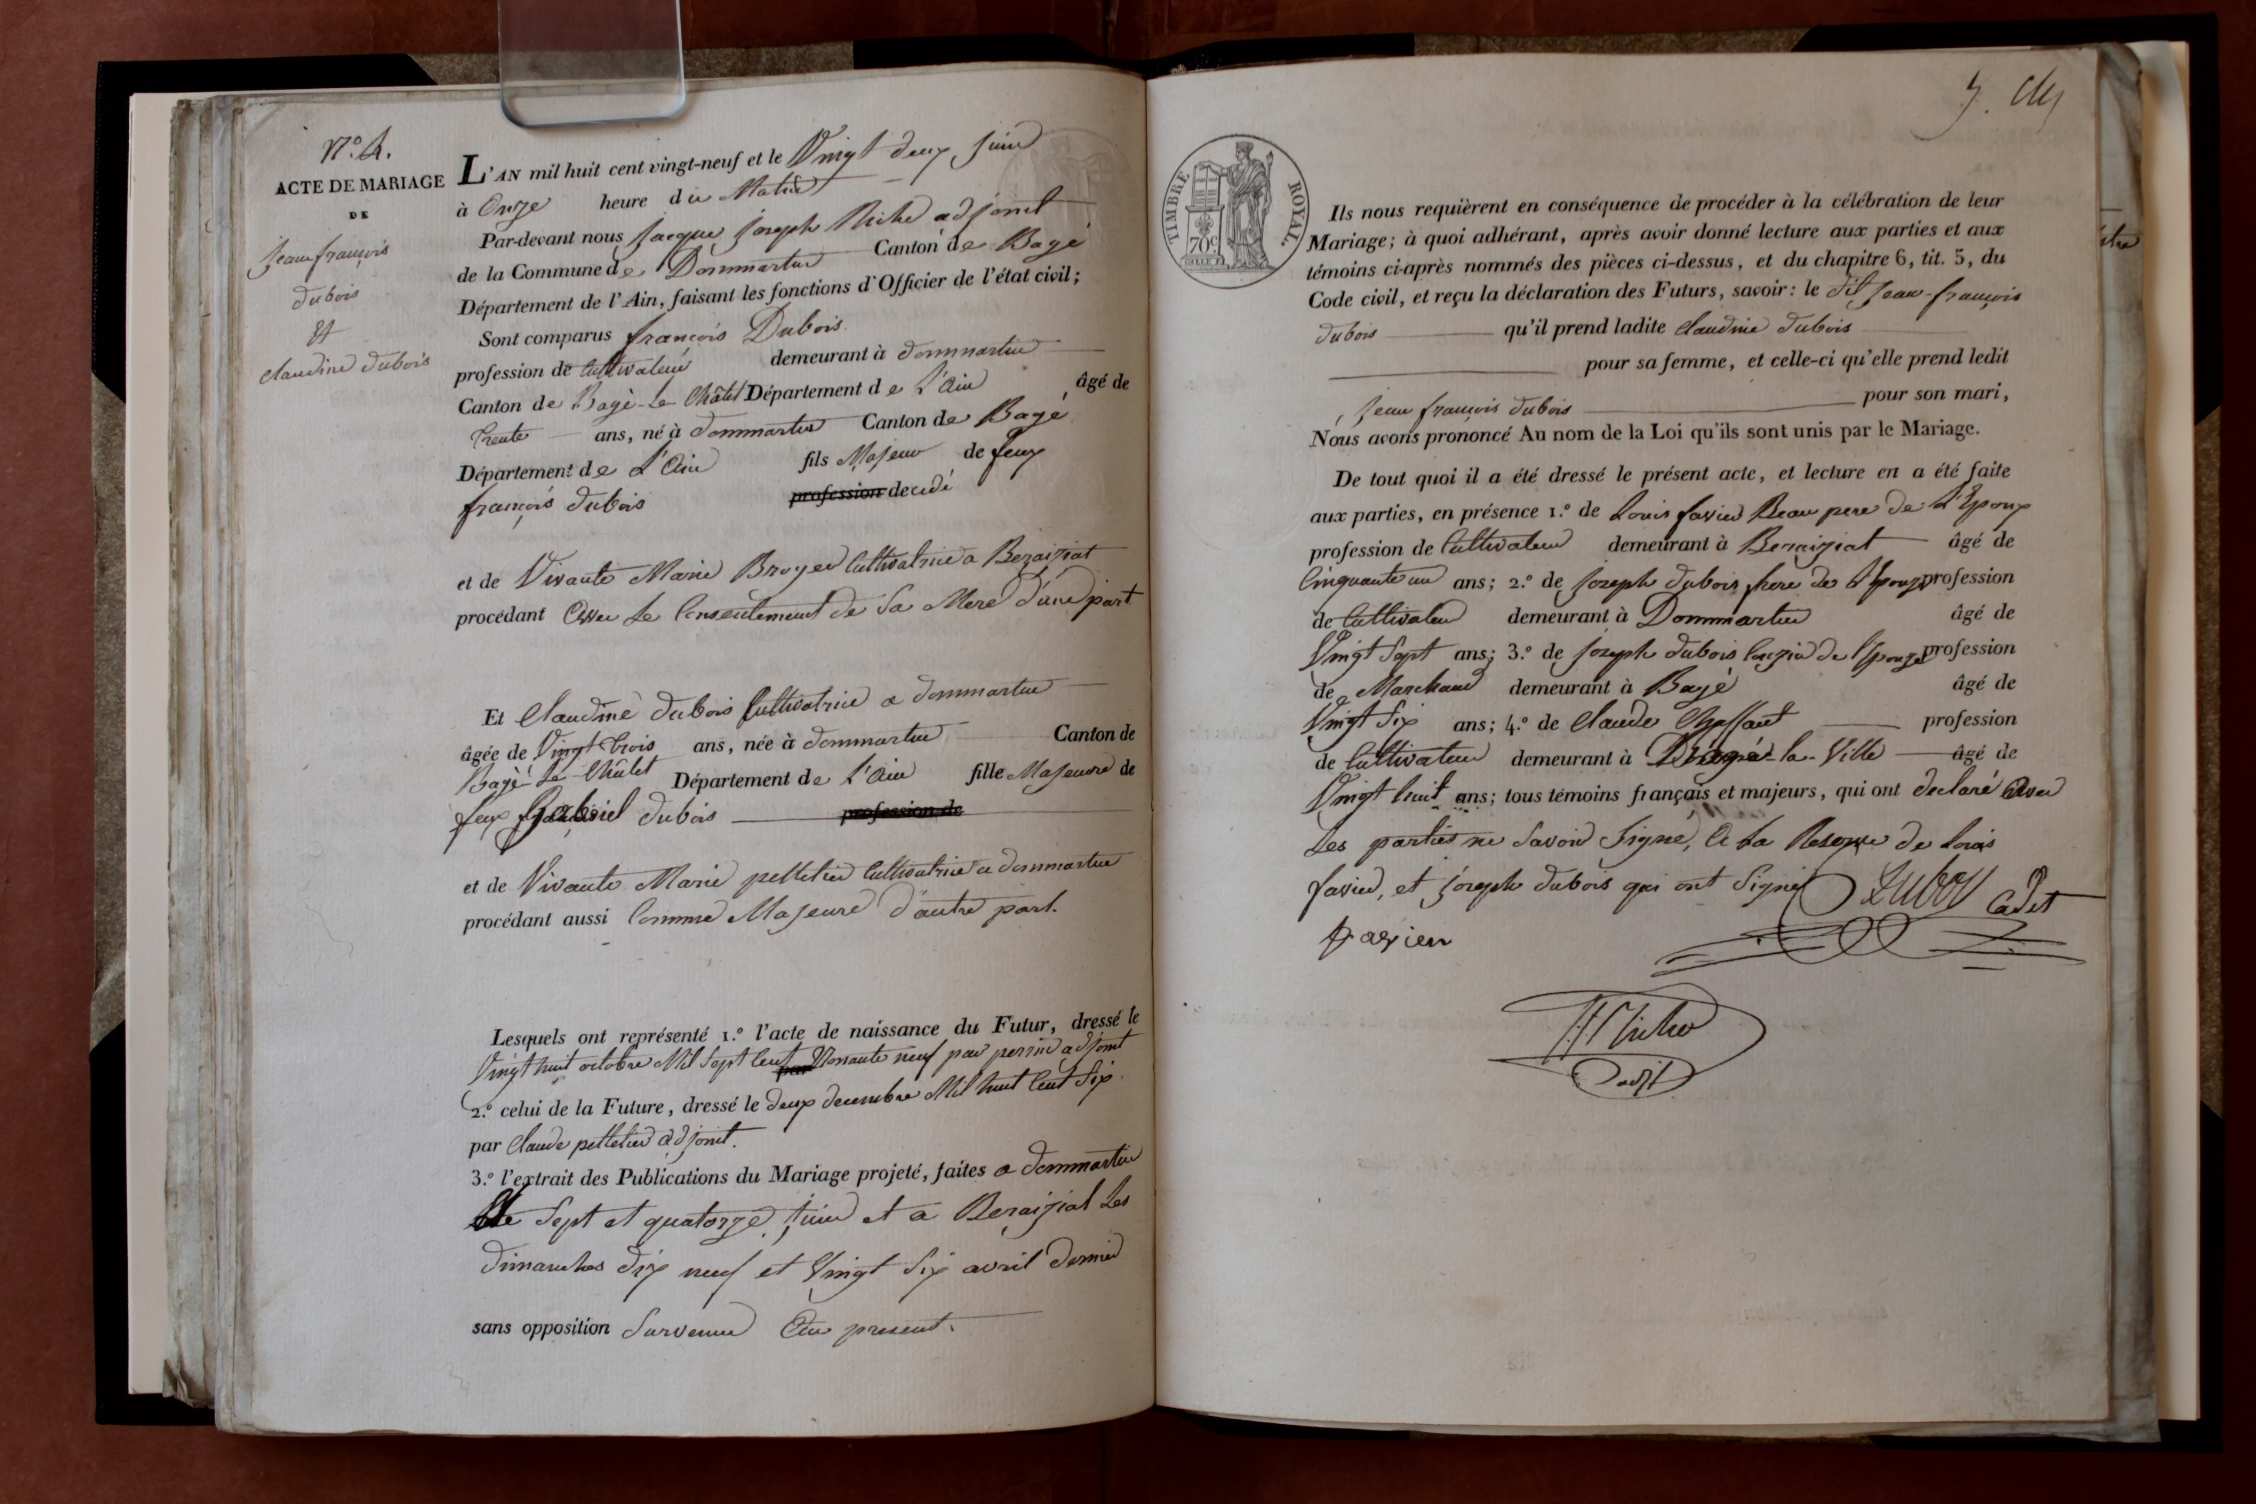 N.º 4.
ACTE DE MARIAGE
DE
Jean françois
dubois
Et
claudine dubois
L'AN mil huit cent vingt-neuf et le Vingt deux Juin
à Onze heure du Matin
Par-devant nous Jacque Joseph Niche adjoint
de la Commune de Dommartin Canton de Bagé
Département de l'Ain, faisant les fonctions d'Officier de l'état civil;
Sont comparus françois Dubois
profession de Cultivateur demeurant à dommartin
Canton de Bagé-Le Châtel Département de L'Ain âgé de
trente ans, né à dommartin Canton de Bagé
Département de L'Ain fils Majeur de feux
françois dubois profession decédé
et de Vivante Marie Broyer Cultivatrice a Bezaiziat
procédant Avec Le Consentement de Sa Mere D'une part
Et Claudine dubois Cultivatrice a dommartin
âgée de Vingt trois ans, née à dommartin Canton de
Bagé Le Châtel Département de L'Ain fille Majeure de
feux Gabriel dubois profession de
et de Vivante Marie pelletier Cultivatrice a dommartin
procédant aussi Comme Majeure D'autre part.
Lesquels ont représenté 1.º l'acte de naissance du Futur, dressé le
Vingt huit octobre Mil Sept Cent Nonante neuf par perrin adjoint
par
2.º celui de la Future, dressé le deux decembre Mil huit Cent Six
par Claude pelletier adjoint.
3.º l'extrait des Publications du Mariage projeté, faites a dommartin
Le Sept et quatorze Juin et a Bezaiziat Les
dimanches dix neuf et Vingt Six avril dernier
sans opposition Survenue Au present.
TIMBRE ROYAL.
70 c
Ils nous requièrent en conséquence de procéder à la célébration de leur
Mariage; à quoi adhérant, après avoir donné lecture aux parties et aux
témoins ci-après nommés des pièces ci-dessus, et du chapitre 6, tit. 5, du
Code civil, et reçu la déclaration des Futurs, savoir: le dit Jean-françois
dubois qu'il prend ladite Claudine dubois
pour sa femme, et celle-ci qu'elle prend ledit
Jean françois dubois pour son mari,
Nous avons prononcé Au nom de la Loi qu'ils sont unis par le Mariage.
De tout quoi il a été dressé le présent acte, et lecture en a été faite
aux parties, en présence 1.º de Louis favier Beau pere de L'Epoux
profession de Cultivateur demeurant à Bezaiziat âgé de
Cinquante un ans; 2.º de Joseph dubois frere de L'Epouze profession
de Cultivateur demeurant à Dommartin âgé de
Vingt Sept ans; 3.º de Joseph dubois Couzin de l'Epouze profession
de Marchand demeurant à Bagé âgé de
Vingt Six ans; 4.º de Claude Chaffaut profession
de Cultivateur demeurant à Bagé-la-Ville âgé de
Vingt huit ans; tous témoins français et majeurs, qui ont declaré Avec
Les parties ne Savoir Signé, A La Reserve de Louis
favier, et Joseph dubois qui ont Signé Duboy Cadet
favier
JJ Niche